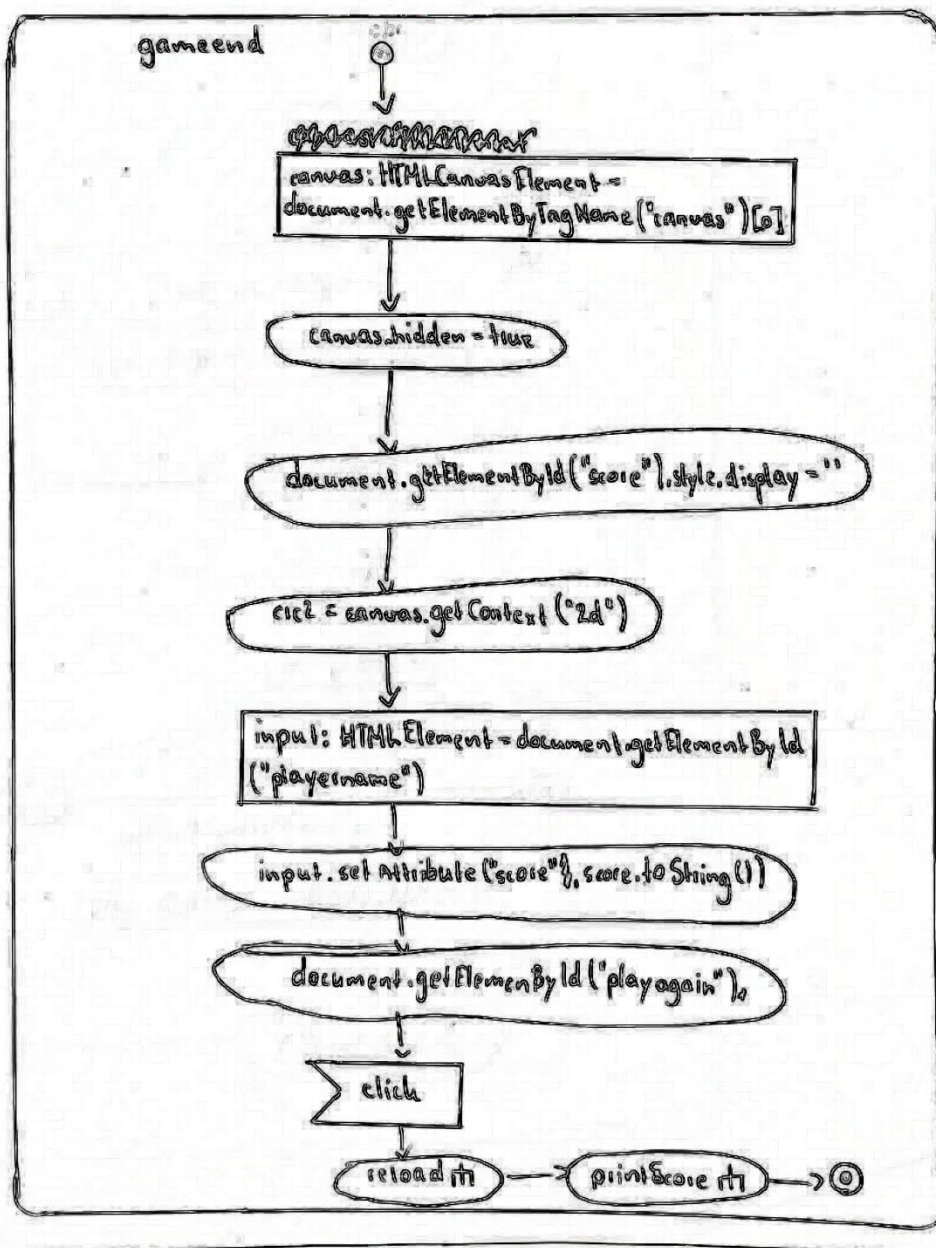 gameend
canvas: HTMLCanvasElement =
document.getElementByTagName("canvas")[0]
canvas.hidden = true
document.getElementById("score").style.display = ''
crc2 = canvas.getContext("2d")
input: HTMLElement = document.getElementById
("playername")
input.setAttribute("score", score.toString())
document.getElemenById("playagain"),
click
reload
printScore